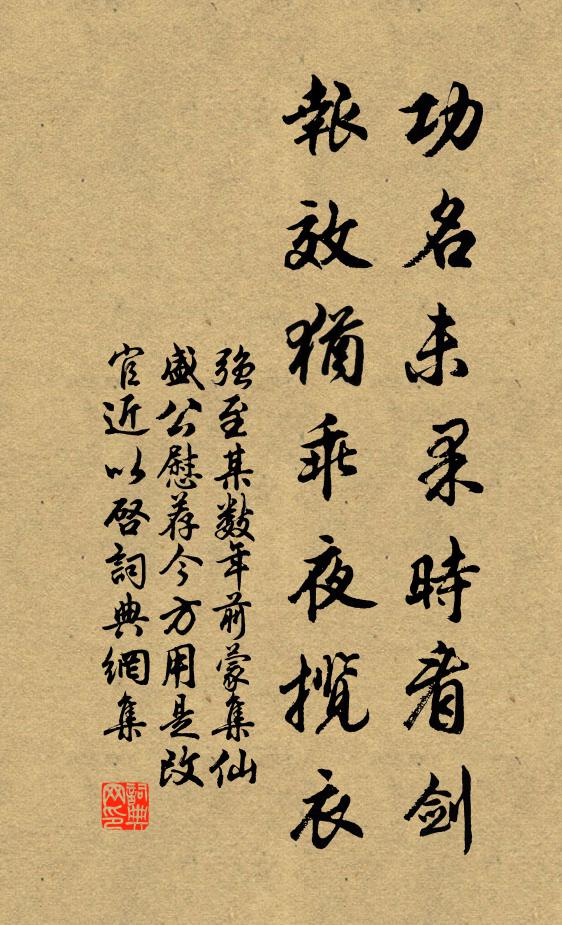 功名未果時看劍
報效猶乖夜攬衣
强至某數年前蒙集仙
盛公慰荐今方用是改
官近以啓詞典網集
詞典
网印